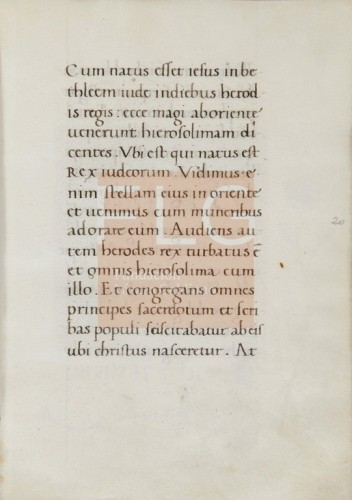 Cum natus esset iesus in be
thleem iude indiebus herod
is regis: ecce magi aboriente
uenerunt hierosolimam di
centes. Vbi est qui natus est
Rex iudeorum Vidimus e
nim stellam eius in oriente
et uenimus cum muneribus
adorare eum. Audiens au
tem herodes rex turbatus ē
et omnis hierosolima cum
illo. Et congregans omnes
principes sacerdotum et scri
bas populi sciscitabatur ab eis
ubi christus nasceretur. At
20
FLG